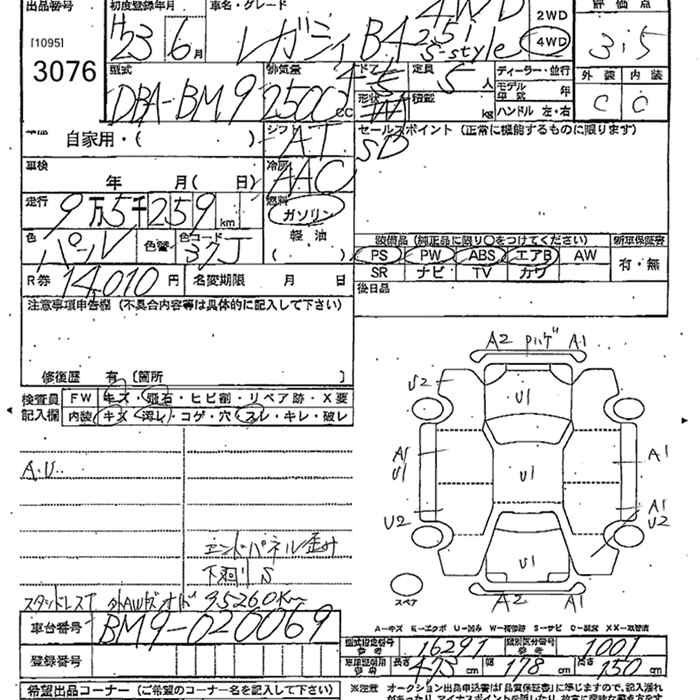 出品番号
[1095]
3076
初度登録年月
H23 年 6 月
車名・グレード
レガシィ B4 2.5i S-style 4WD
2WD
4WD
評価点
3.5
型式
DBA-BM9
排気量
2500 cc
ドア
定員
5 人
形状
積載
kg
ディーラー・並行
モデル年式 年
ハンドル 左・右
外装 内装
C C
自家用・( )
シフト
AT
SD
セールスポイント (正常に機能するものに限ります)
車検
年 月( 日)
冷房
AAC
走行
9万5千259 km
燃料
ガソリン
軽油
( )
色
パール
色替
色コード
37J
装備品 (純正品に限り〇をつけてください) 新車保証書
PS PW ABS エアB AW 有・無
SR ナビ TV カワ
後日品
R券 14,010 円 名変期限 月 日
注意事項申告欄 (不具合内容等は具体的に記入して下さい)
修復歴 有 [箇所 ]
検査員記入欄
FW キズ・飛石・ヒビ割・リペア跡・X要
内装 キズ・汚レ・コゲ・穴・スレ・キレ・破レ
A.U
エンドパネル歪み
下廻りS
スタッドレスT
オド 95260Km
A2 A1
U2
U1
A1
U1
U1
A1
U2
A1
U2
U1
A2 A1
スペア
A-キズ E-エクボ U-凹み W-補修跡 S-サビ C-腐食 XX-取替済
車台番号 BM9-020069
登録番号
型式指定番号 参考 16291 類別区分番号 参考 1001
長さ 473 cm 幅 178 cm 高さ 150 cm
希望出品コーナー (ご希望のコーナー名を記入下さい)
※注意 オークション出品申込書は「品質保証書」に準じますので、記入漏れ